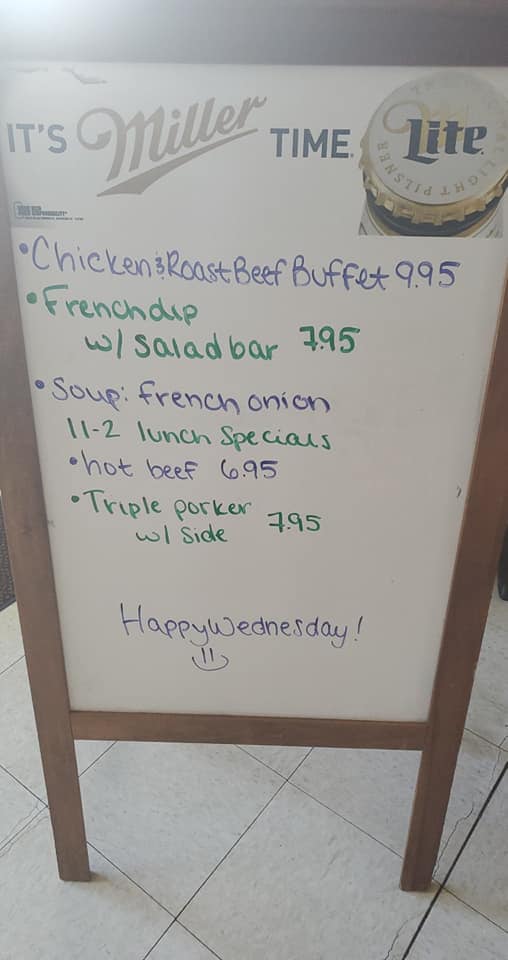 IT'S Miller TIME. Lite
LIGHT PILSNER
•Chicken & Roast Beef Buffet 9.95
•Frenchdip
w/ Salad bar 7.95
•Soup: french onion
11-2 lunch Specials
•hot beef 6.95
•Triple porker
w/ Side 7.95
Happy Wednesday!